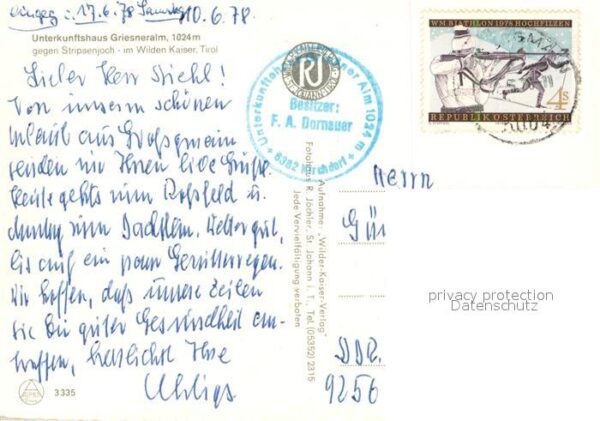 eingeg: 17.6.78 Samstag
10.6.78
Unterkunftshaus Griesneralm, 1024 m
gegen Stripsenjoch - im Wilden Kaiser, Tirol
Lieber Herr Stiehl!
Von unserem schönen
Urlaub aus Großgmain
senden wir Ihnen liebe Grüße.
Heute gehts zum Roßfeld u.
zum Dachstein. Wetter gut,
bis auf ein paar Gewitterregen.
Wir hoffen, daß unsere Zeilen
Sie bei guter Gesundheit an-
treffen, herzlichst Ihre
Uhligs
3335
RJ
Unterkunftshaus Griesner Alm 1024 m
Besitzer:
F. A. Dornauer
6382 Kirchdorf
Aufnahme: „Wilder-Kaiser-Verlag"
Fotohaus R. Jöchler, St. Johann i. T., Tel. (05352) 2315
Jede Vervielfältigung verboten
WM BIATHLON 1978 HOCHFILZEN
4s
REPUBLIK ÖSTERREICH
Herrn
Gün
DDR
9256
privacy protection
Datenschutz